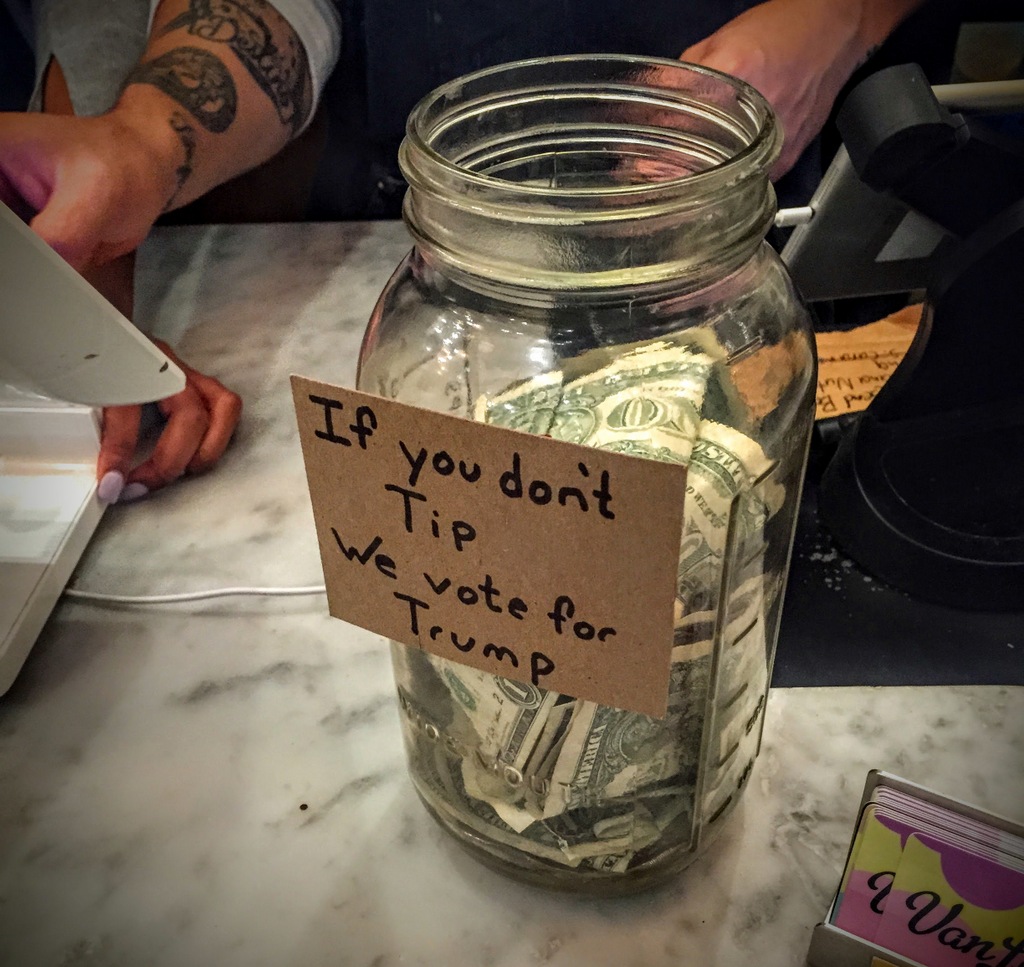 If you don't
Tip
We vote for
Trump
Van